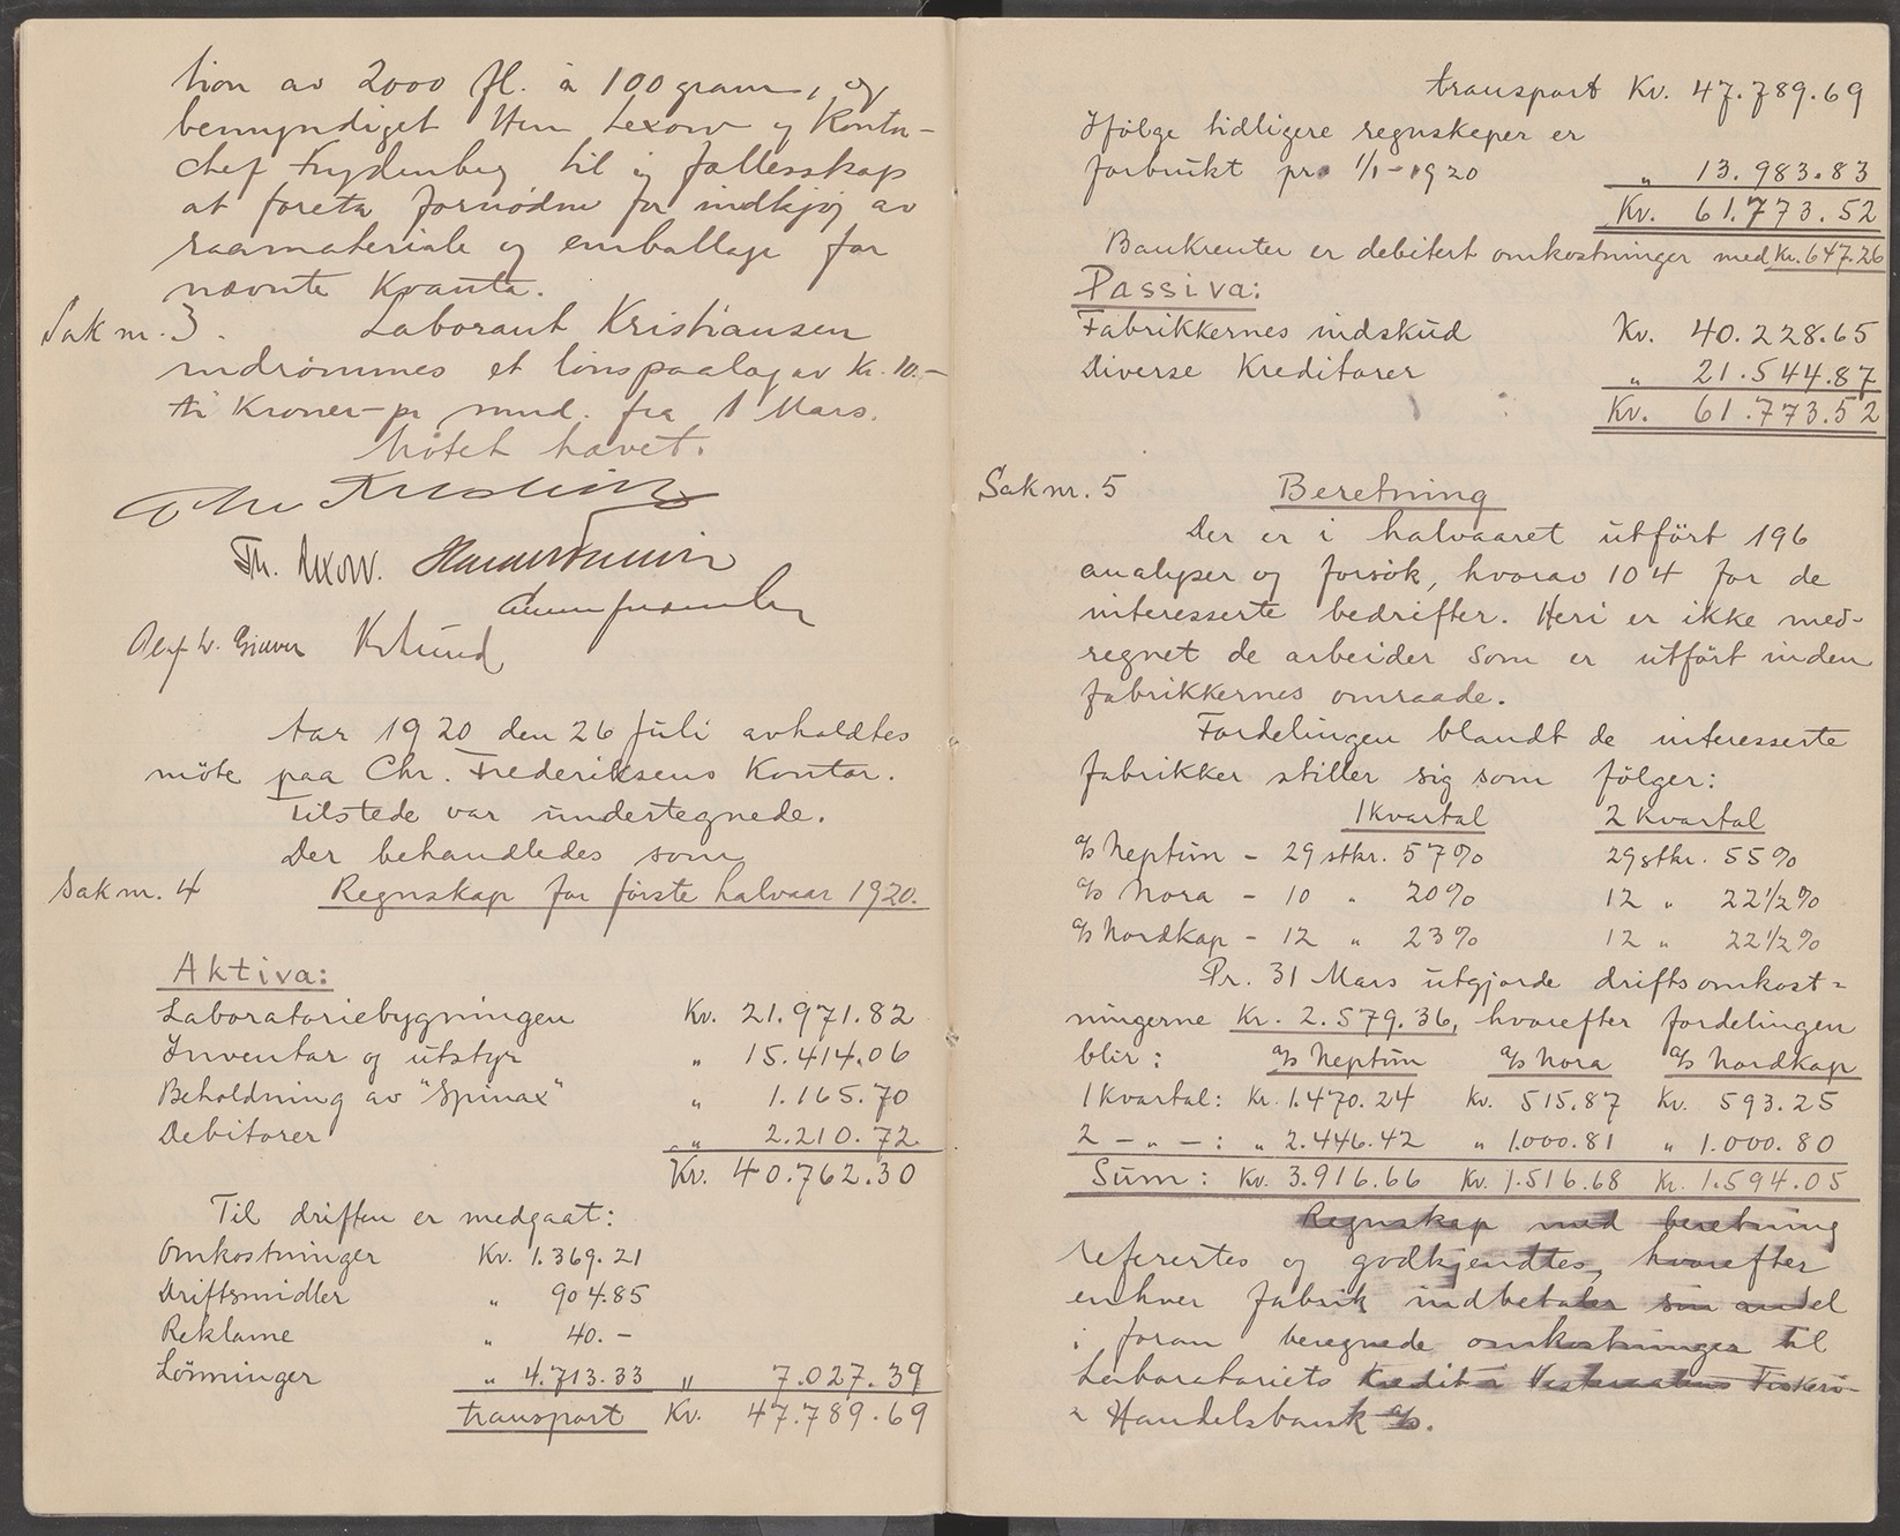 tion av 2000 fl. à 100 gram, og
bemyndiget Herr Lexow og Kontor-
chef Frydenberg til i fællesskap
at foreta fornødne for indkjøp av
raamateriale og emballage for
nævnte Kvanta.
Sak nr. 3. Laborant Kristiansen
indrømmes et lønspaalæg av Kr. 10.-
ti Kroner - pr mnd. fra 1 Mars.
Møtet hævet.
Th. Lexow.
Olaf W. Giæver
Aar 1920 den 26 Juli avholdtes
møte paa Chr. Frederiksens Kontor.
Tilstede var undertegnede.
Der behandledes som
Sak nr. 4 Regnskap for første halvaar 1920.
Aktiva:
Laboratoriebygningen Kr. 21.971.82
Inventar og utstyr " 15.414.06
Beholdning av "Spinax" " 1.165.70
Debitorer " 2.210.72
Kr. 40.762.30
Til driften er medgaat:
Omkostninger Kr. 1.369.21
Driftsmidler " 904.85
Reklame " 40.-
Lønninger " 4.713.33 " 7.027.39
transport Kr. 47.789.69
transport Kr. 47.789.69
Ifølge tidligere regnskeper er
forbrukt pr. 1/1-1920 " 13.983.83
Kr. 61.773.52
Bankrenter er debitert omkostninger med Kr. 647.26
Passiva:
Fabrikkernes indskud Kr. 40.228.65
Diverse Kreditorer " 21.544.87
Kr. 61.773.52
Sak nr. 5 Beretning
Der er i halvaaret utført 196
analyser og forsøk, hvorav 104 for de
interesserte bedrifter. Heri er ikke med-
regnet de arbeider som er utført inden
fabrikkernes omraade.
Fordelingen blandt de interesserte
fabrikker stiller sig som følger:
1 Kvartal 2 Kvartal
a/s Neptun - 29 stkr. 57% 29 stkr. 55%
a/s Nora - 10 " 20% 12 " 22 1/2%
a/s Nordkap - 12 " 23% 12 " 22 1/2%
Pr. 31 Mars utgjorde driftsomkost=
ningerne Kr. 2.579.36, hvorefter fordelingen
blir: a/s Neptun a/s Nora a/s Nordkap
1 Kvartal: Kr. 1.470.24 Kr. 515.87 Kr. 593.25
2 - " - : " 2.446.42 " 1.000.81 " 1.000.80
Sum: Kr. 3.916.66 Kr. 1.516.68 Kr. 1.594.05
Regnskap med beretning
refertes og godkjendtes, hvorefter
enhver fabrik indbetaler sin andel
i foran beregnede omkostninger til
Laboratoriets Kredit i Vesteraalens Fiskeri-
& Handelsbank a/s.